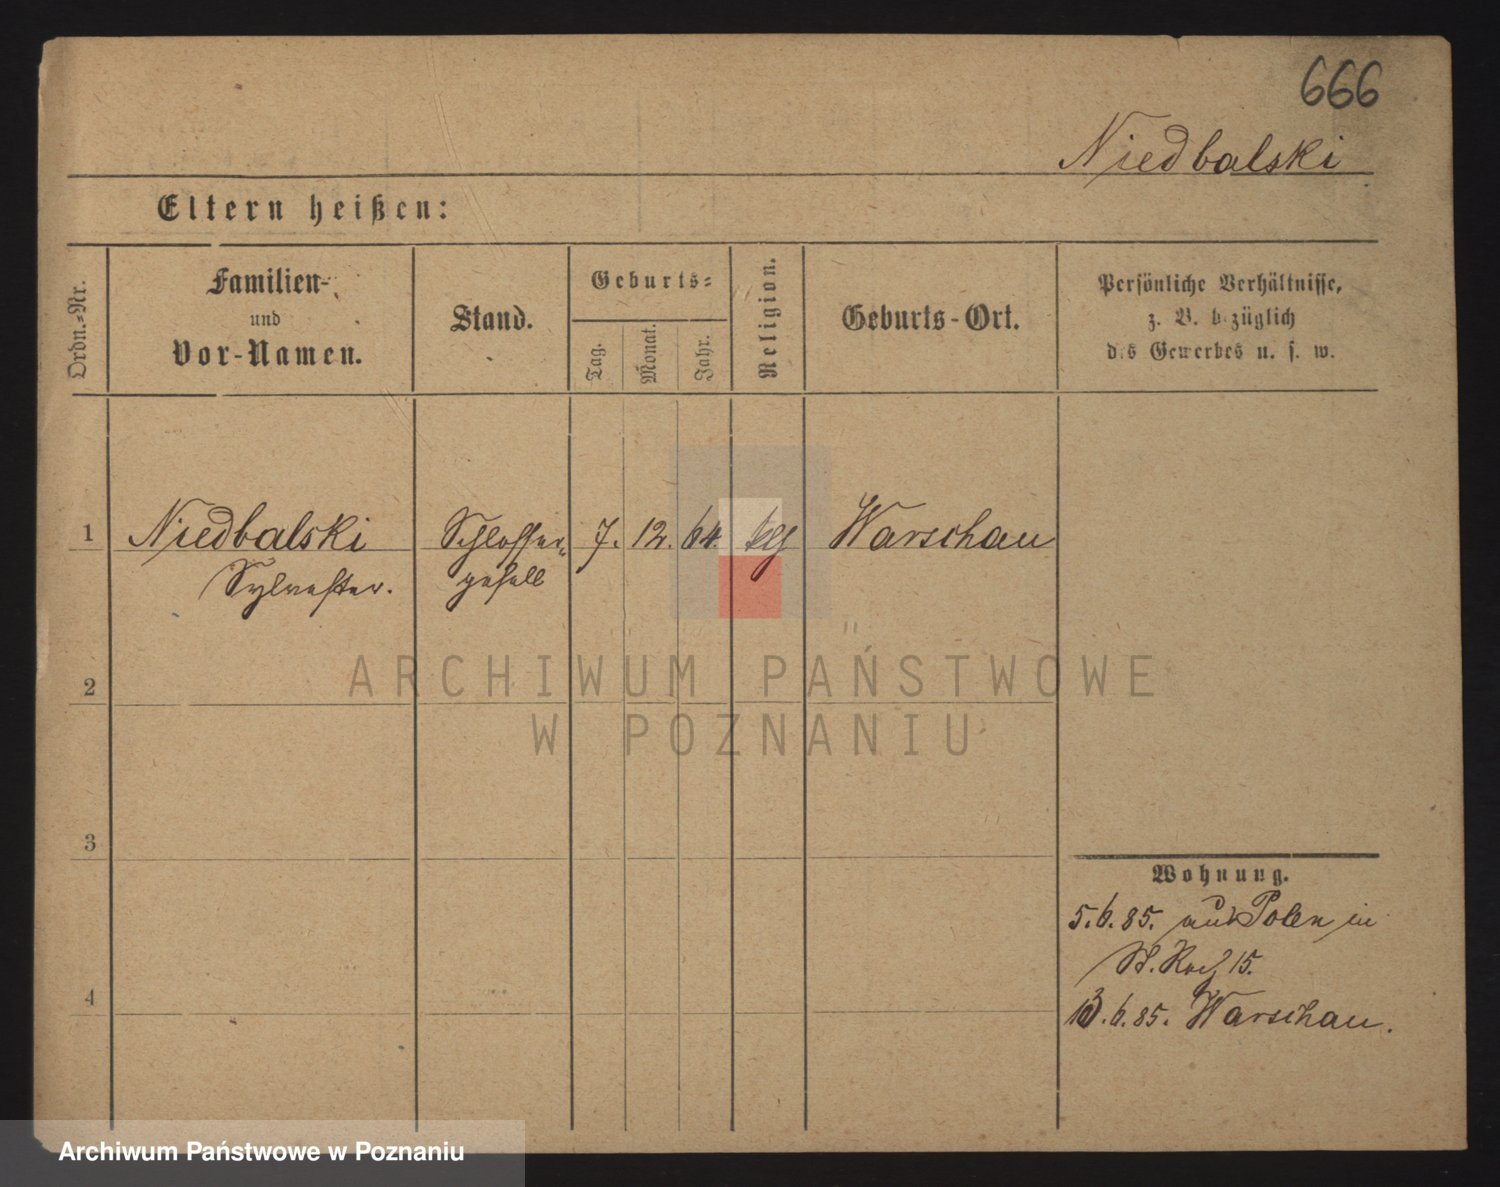 666
Niedbalski
Eltern heißen:
Ordn.-Nr.
Familien-
und
Vor-Namen.
Stand.
Geburts-
Tag.
Monat.
Jahr.
Religion.
Geburts-Ort.
Persönliche Verhältnisse,
z. B. bezüglich
des Gewerbes u. s. w.
1 Niedbalski Schlosser- 7. 12. 64. kth Warschau
Sylvester. gesell
2
3
4
Wohnung.
5.6.85. aus Polen in
St. Roch 15.
13.6.85. Warschau.
ARCHIWUM PAŃSTWOWE
W POZNANIU
Archiwum Państwowe w Poznaniu